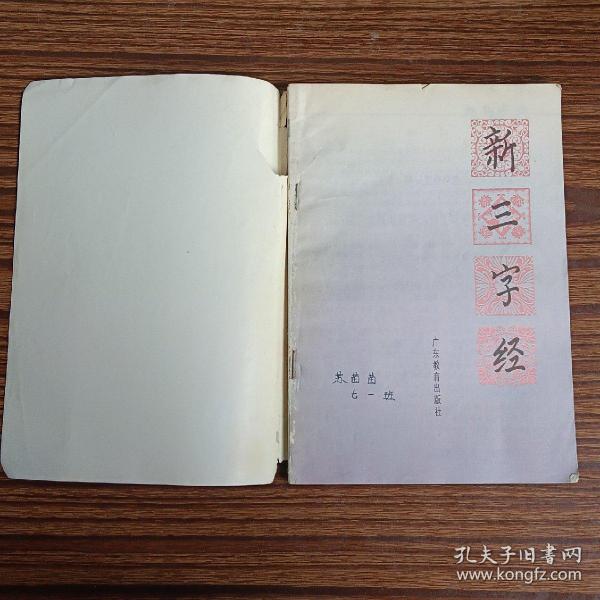 新三字经
广东教育出版社
苏苗苗
七一班
孔夫子旧書网
www.kongfz.com